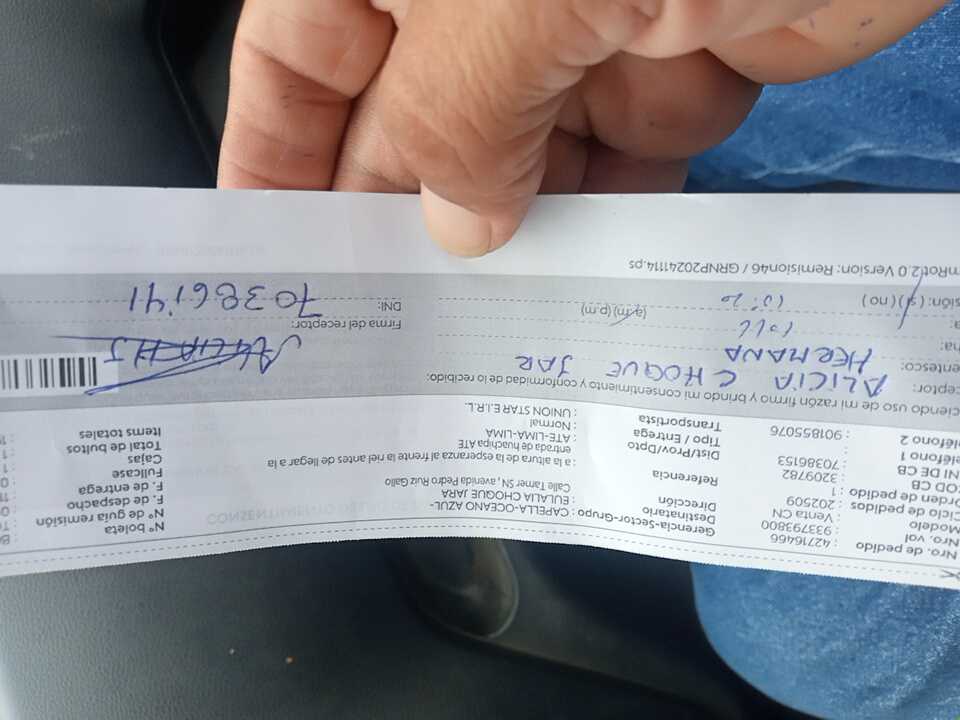 Nro. de pedido : 42716466
Nro. val : 933793800
Modelo : Venta CN
Ciclo de pedidos : 202509
Orden de pedido : 1
COD CB : 3209782
DNI DE CB : 70386153
Teléfono 1 :
Teléfono 2 : 901855076
Gerencia-Sector-Grupo : CAPELLA-OCEANO AZUL-
Destinatario : EULALIA CHOQUE JARA
Dirección : Calle Tamer SN, avenida Pedro Ruiz Gallo
Referencia : a la altura de la esperanza al frente la riel antes de llegar a la entrada de huachipa ATE
Dist/Prov/Dpto : ATE-LIMA-LIMA
Tipo / Entrega : Normal
Transportista : UNION STAR E.I.R.L.
N° boleta
N° de guía remisión
F. de despacho
F. de entrega
Fullcase
Cajas
Total de bultos
Items totales
CONSENTIMIENTO
ciendo uso de mi razón firmo y brindo mi consentimiento y conformidad de lo recibido:
ceptor: ALICIA CHOQUE JAR
entesco: HERMANA
ha:
a: 10:20 (a.m) (p.m)
sión: (si) (no)
Firma del receptor: ALICIA
DNI: 70386141
mRot2.0 Version: Remision46 / GRNP20241114.ps